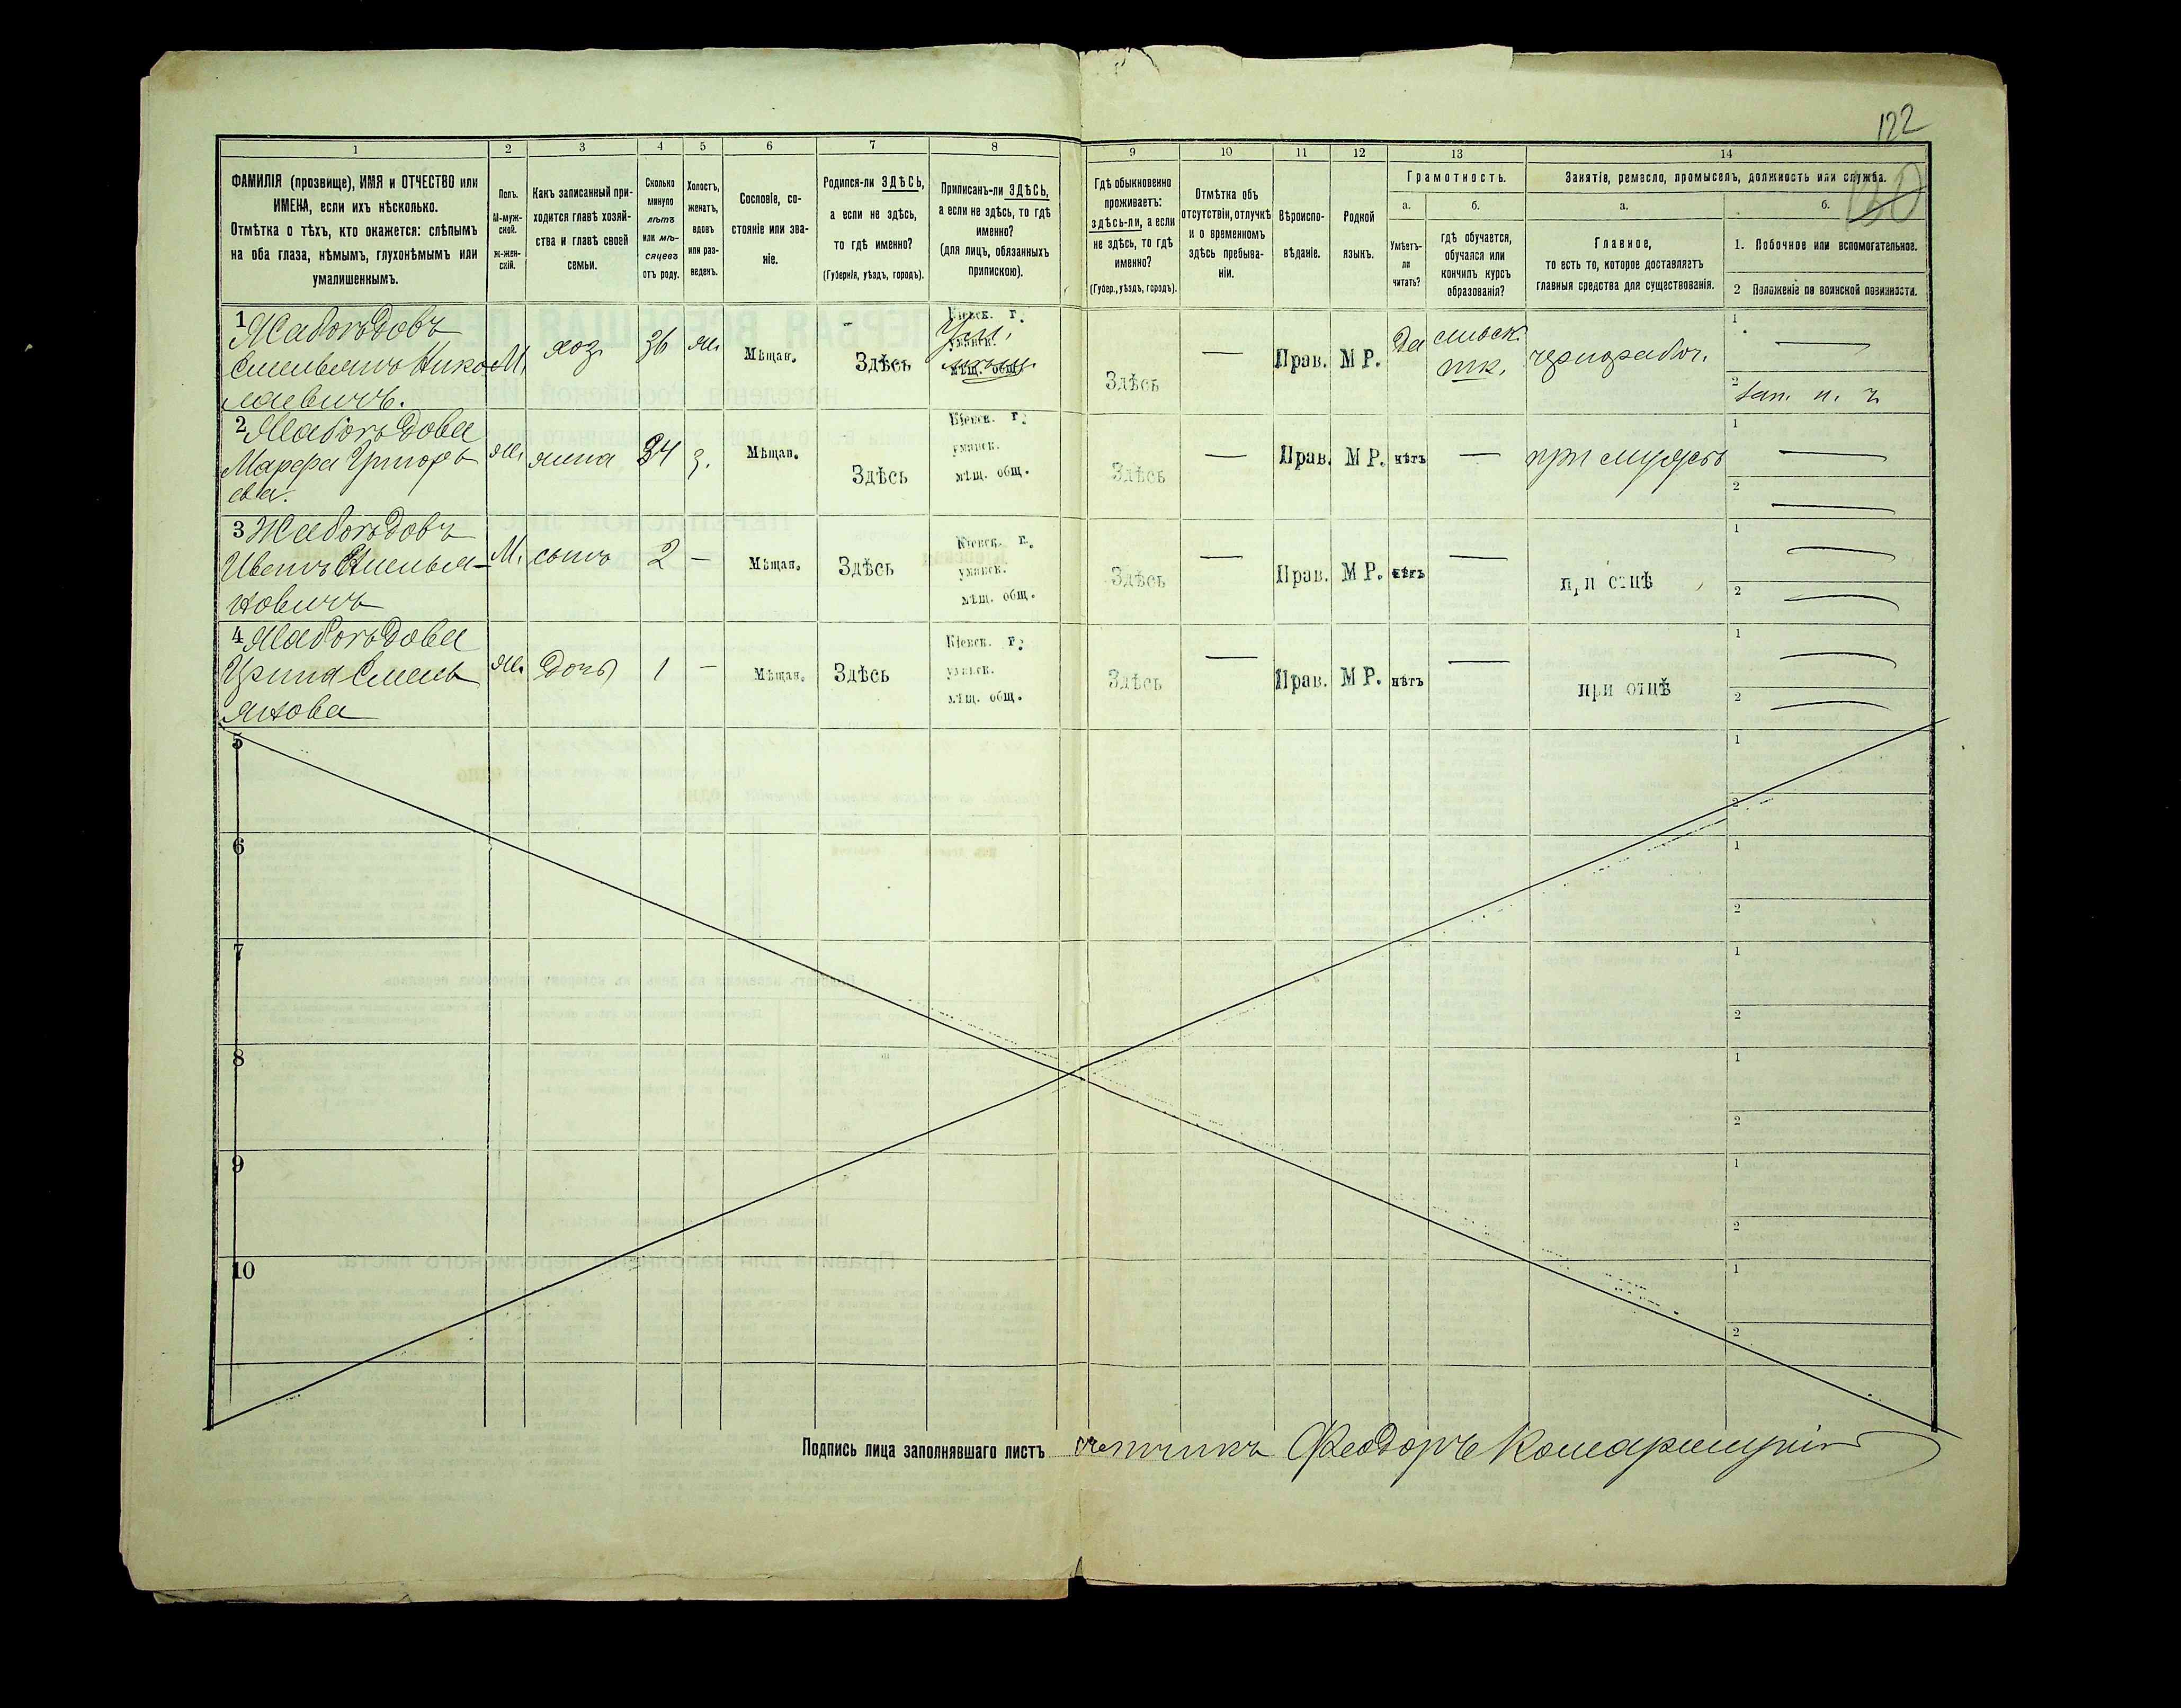 122
130
1 2 3 4 5 6 7 8 9 10 11 12 13 14
ФАМИЛІЯ (прозвище), ИМЯ и ОТЧЕСТВО или
ИМЕНА, если ихъ нѣсколько.
Отмѣтка о тѣхъ, кто окажется: слѣпымъ
на оба глаза, нѣмымъ, глухонѣмымъ или
умалишеннымъ.
Полъ.
М-муж-
ской.
Ж-жен-
скій.
Какъ записанный при-
ходится главѣ хозяй-
ства и главѣ своей
семьи.
Сколько
минуло
лѣтъ
или мѣ-
сяцевъ
отъ роду.
Холостъ,
женатъ,
вдовъ
или раз-
веденъ.
Сословіе, со-
стояніе или зва-
ніе.
Родился-ли ЗДѢСЬ,
а если не здѣсь,
то гдѣ именно?
(Губернія, уѣздъ, городъ).
Приписанъ-ли ЗДѢСЬ,
а если не здѣсь, то гдѣ
именно?
(для лицъ, обязанныхъ
припискою).
Гдѣ обыкновенно
проживаетъ:
здѣсь-ли, а если
не здѣсь, то гдѣ
именно?
(Губер., уѣздъ, городъ).
Отмѣтка объ
отсутствіи, отлучкѣ
и о временномъ
здѣсь пребыва-
ніи.
Вѣроиспо-
вѣданіе.
Родной
языкъ.
Грамотность.
а.
Умѣетъ-
ли
читать?
б.
гдѣ обучается,
обучался или
кончилъ курсъ
образованія?
Занятіе, ремесло, промыселъ, должность или служба.
а.
Главное,
то есть то, которое доставляетъ
главныя средства для существованія.
б.
1. Побочное или вспомогательное.
2 Положеніе по воинской повинности.
1 Жабоѣдовъ
Емельянъ Нико-
лаевичъ.
М. хоз. 36 ж. Мѣщан. Здѣсь
Кіевск. г.
уманск.
мѣщ. общ.
Здѣсь — Прав. М Р. Да
чернорабоч.
1 —
2
2 Жабоѣдова
Марфа Григорь
ева.
ж. жена 34 з. Мѣщан. Здѣсь
Кіевск. г.
уманск.
мѣщ. общ.
Здѣсь — Прав. М Р. нѣтъ — при мужѣ
1 —
2 —
3 Жабоѣдовъ
Иванъ Емелья-
новичъ
М. сынъ 2 — Мѣщан. Здѣсь
Кіевск. г.
уманск.
мѣщ. общ.
Здѣсь — Прав. М Р. нѣтъ — при отцѣ
1 —
2 —
4 Жабоѣдова
Ирина Емель
янова
ж. дочь 1 — Мѣщан. Здѣсь
Кіевск. г.
уманск.
мѣщ. общ.
Здѣсь — Прав. М Р. нѣтъ — при отцѣ
1 —
2 —
5
1
2
6
1
2
7
1
2
8
1
2
9
1
2
10
1
2
Подпись лица заполнявшаго листъ счетчикъ Феодоръ Комарницкій